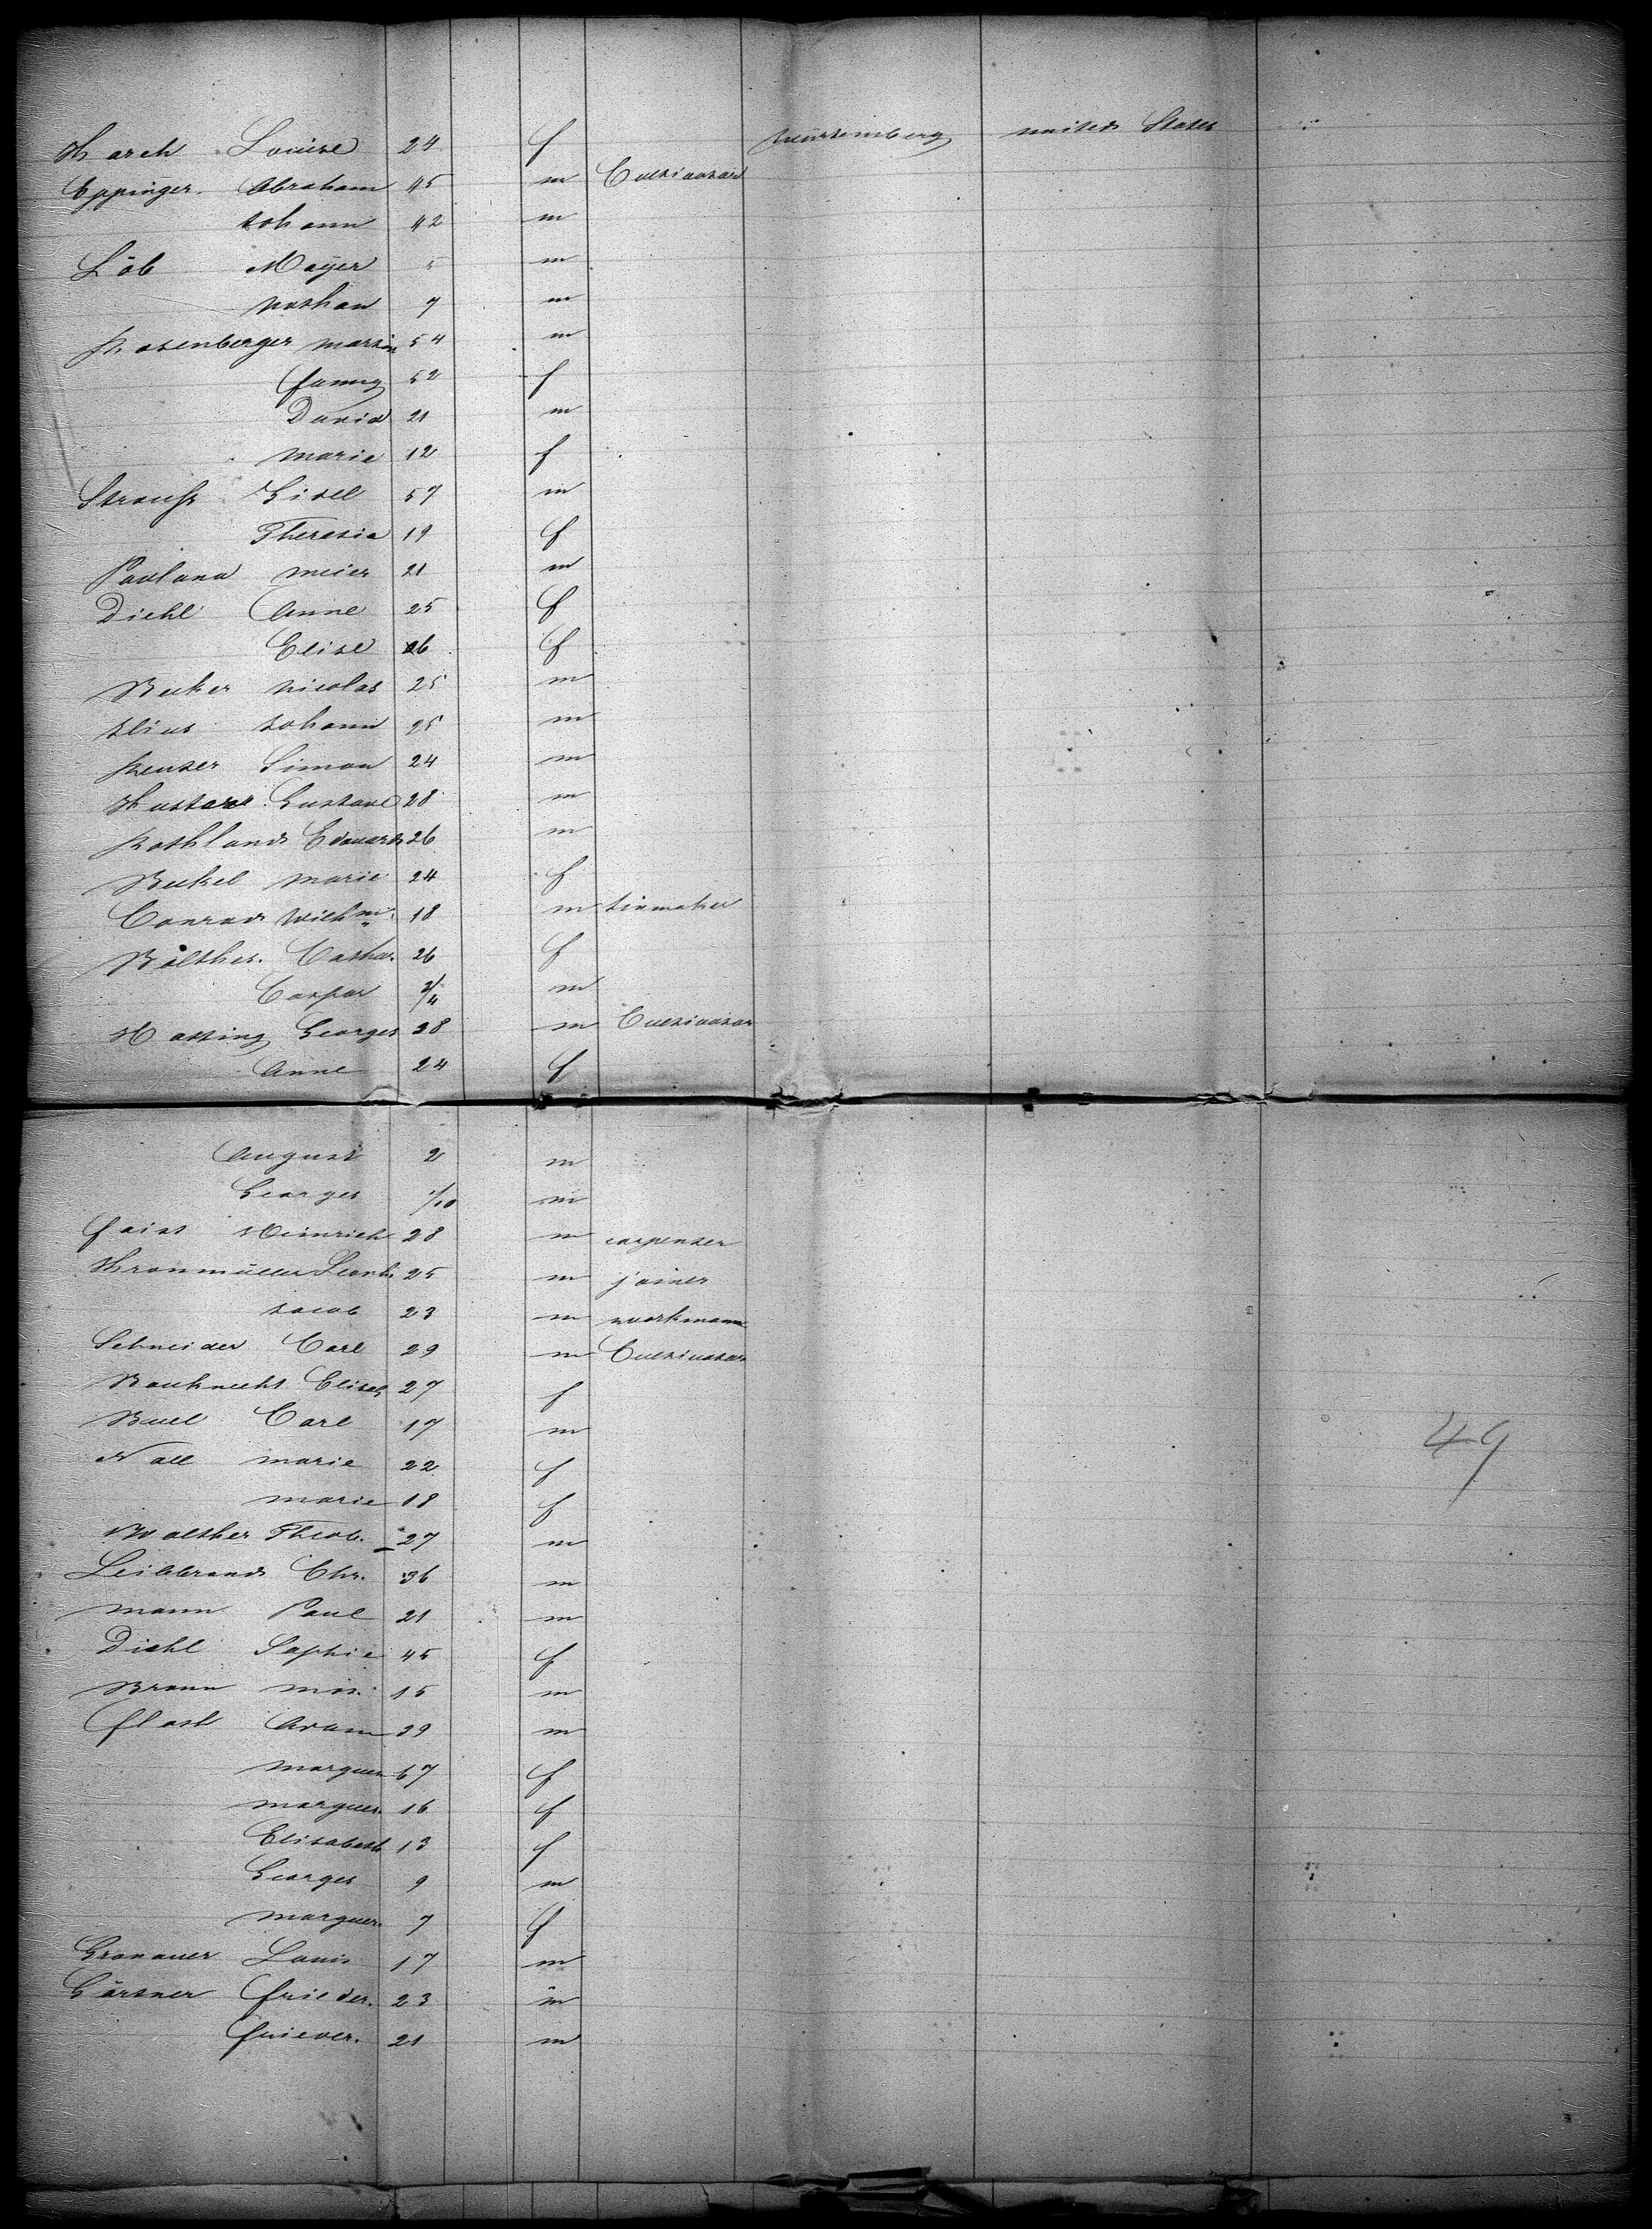 Karch Louise 24 f Würtemberg united States
Eppinger Abraham 45 m Cultivator
Johann 42 m
Löb Mayer 5 m
Nathan 7 m
Rosenberger Martin 54 m
fanny 52 f
David 21 m
Marie 12 f
Strauss 57 m
Theresia 19 f
Meier 21 m
Diehl Anne 25 f
Elise 26 f
Becker Nicolas 25 m
Johann 25 m
Reuter Simon 24 m
Gustave 28 m
Rothland Edouard 26 m
Beckel Marie 24 f
Conrad Wilhm. 18 m
Bölther. Cathar. 26 f
Caspar 3/4 m
Hassing Georges 38 m Cultivator
Anne 24 f
August 2 m
Georges 1/10 m
faist Heinrich 28 m carpenter
Kronmüller Leonh. 25 m joiner
Jacob 23 m workmann
Schneider Carl 29 m Cultivator
Bauknecht Elisab. 27 f
Buel Carl 17 m
Nall Marie 22 f
Marie 18 f
Walther Theob. 27 m
Leibbrand Chr. 36 m
Mann Paul 21 m
Diehl Sophie 45 f
Braun 15 m
flash Adam 39 m
Marguer. 67 f
Marguer. 16 f
Elisabeth 13 f
Georges 9 m
Marguer. 7 f
Gronauer Louis 17 m
Gärtner frieder. 23 m
frieder. 21 m
49